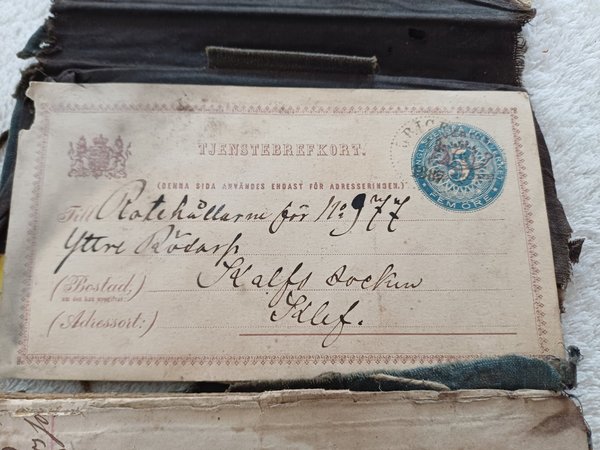 TJENSTEBREFKORT.
(DENNA SIDA ANVÄNDES ENDAST FÖR ADRESSERINGEN.)
FEM ÖRE
5
Till Rotehållarne för No 977
Yttre Rödarp
Kalfs socken
(Bostad)
om den kan uppgifvas
Klef.
(Adressort:)